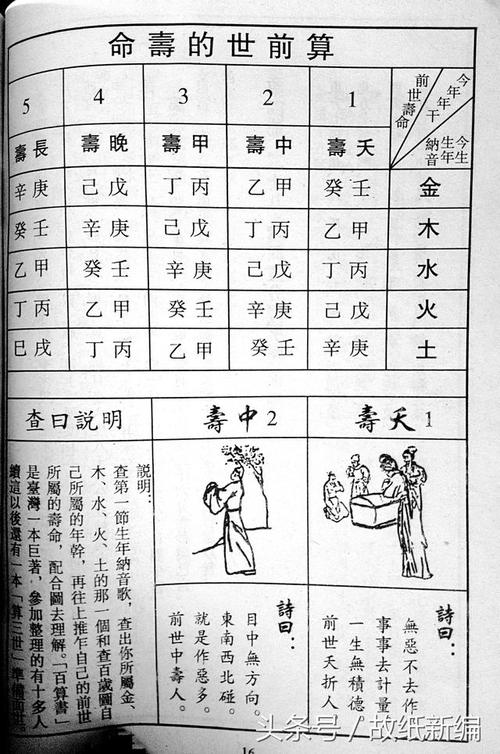 算前世的壽命
今年年干
前世壽命
今生生年納音
1 2 3 4 5
夭壽 中壽 甲壽 晚壽 長壽
金 壬癸 甲乙 丙丁 戊己 庚辛
木 甲乙 丙丁 戊己 庚辛 壬癸
水 丙丁 戊己 庚辛 壬癸 甲乙
火 戊己 庚辛 壬癸 甲乙 丙丁
土 庚辛 壬癸 甲乙 丙丁 戌巳
1 夭壽
詩曰：
無惡不去作
事事去計量
一生無積德
前世夭折人
2 中壽
詩曰：
目中無方向。
東南西北碰。
就是作惡多。
前世中壽人。
查曰説明
説明：
查第一節生年納音歌，查出你所屬金、
木、水、火、土的那一個和查百歲圖自
己所屬的年幹，再往上推乍自己的前世
所屬的壽命，配合圖去理解。「百算書」
是臺灣一本巨著，參加整理的有十多人
續這以後還有一本「算三世」準備前世。
16
头条号／故纸新编